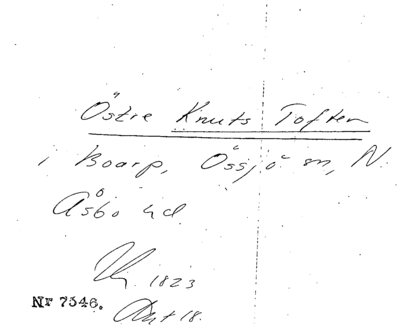 Östre Knuts Toften
i Boarp, Össjö sn, N.
Åsbo hd.
1823
Nr 7546. Akt 18.